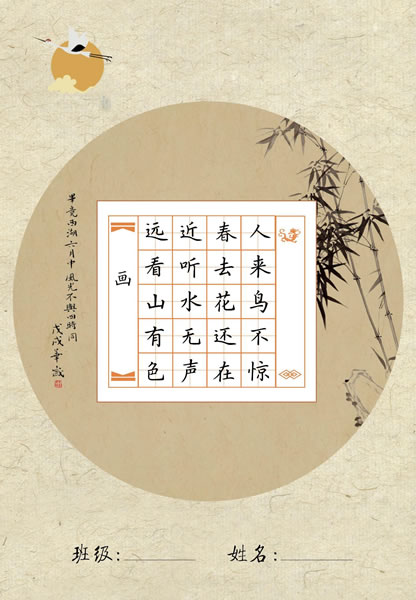 畢竟西湖六月中
風光不與四時同
戊戌
画
远看山有色
近听水无声
春去花还在
人来鸟不惊
班级:
姓名: